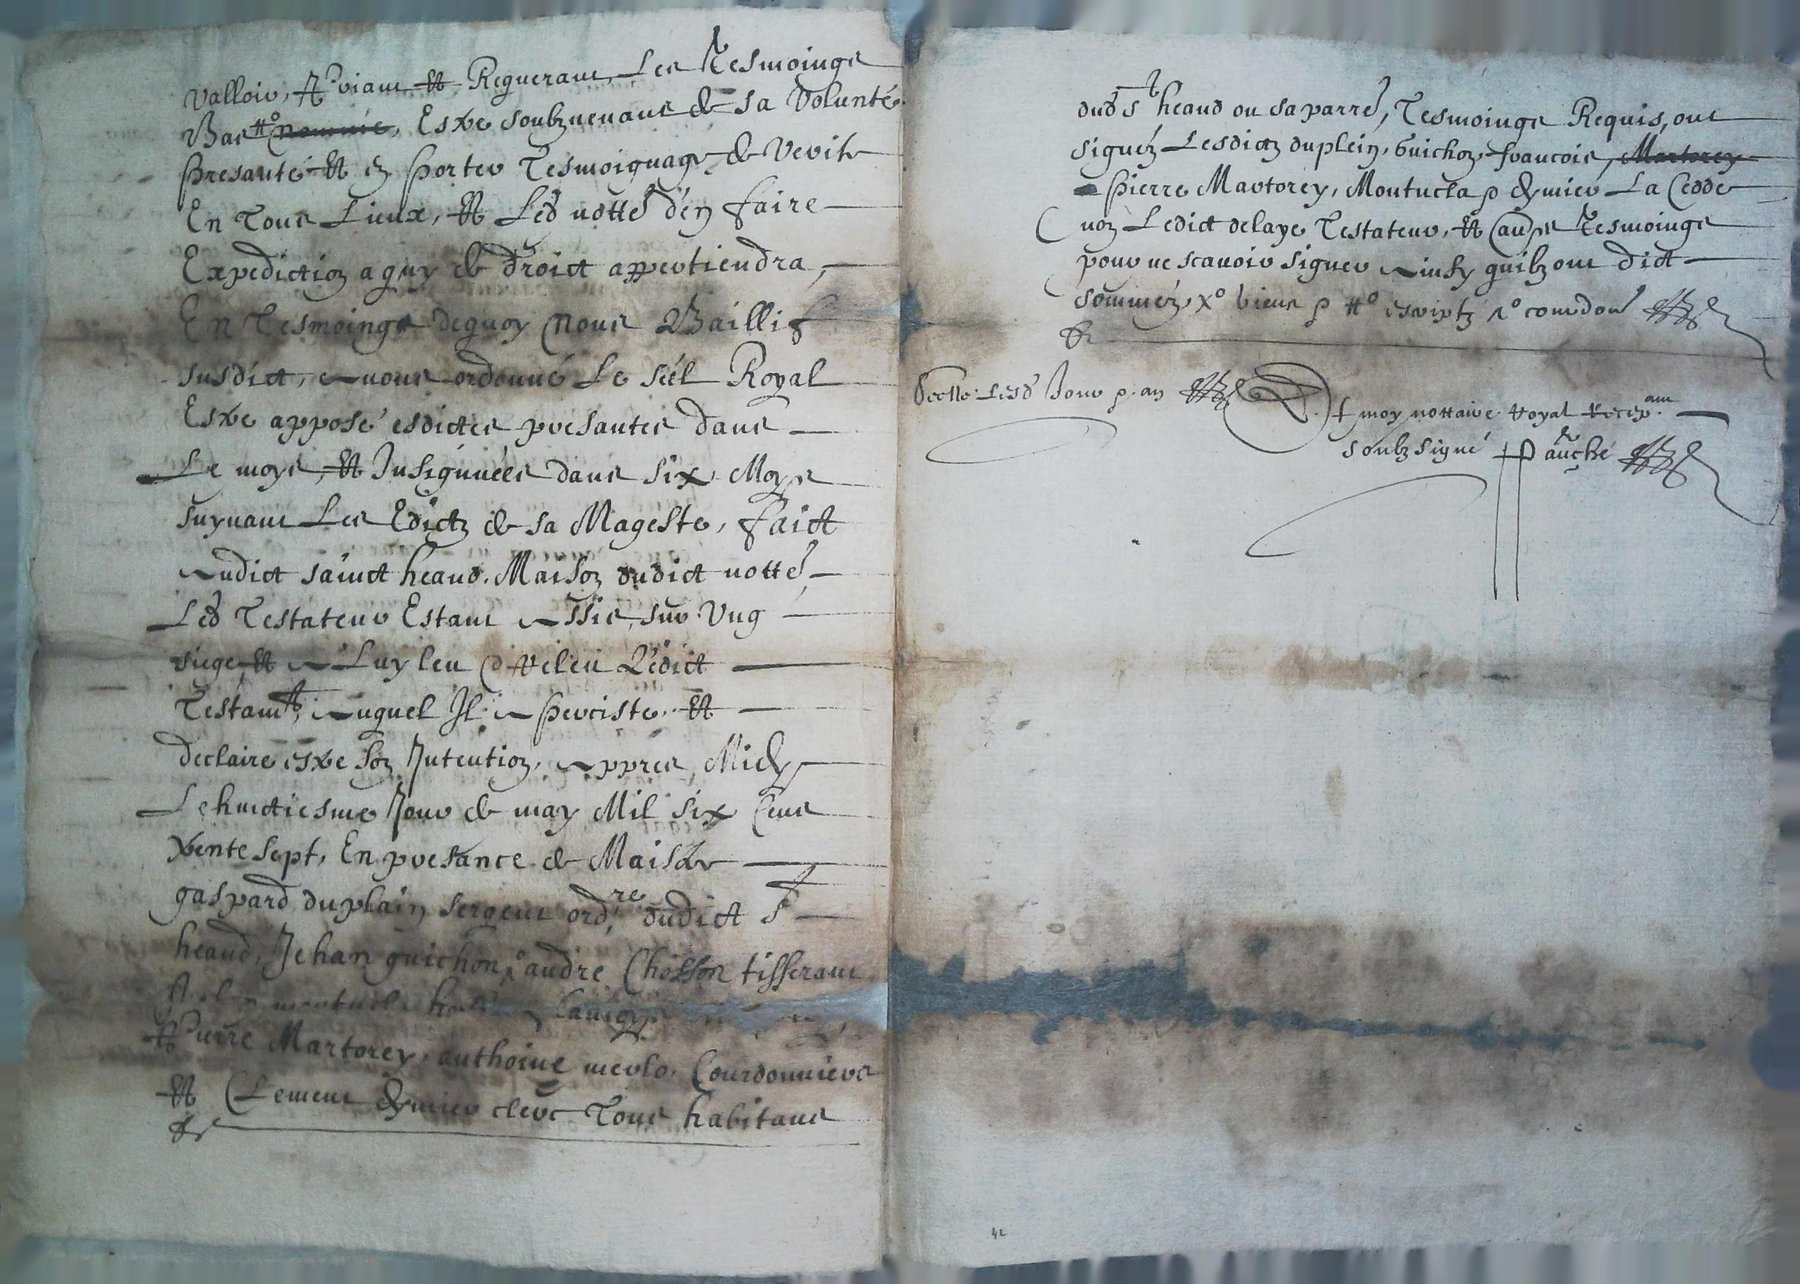 valloir, Priant et Requerant, Les Tesmoings
Bas nommés, Estre soubzvenans de sa Volunté
presante et en porter Tesmoignage de Verité
En Tous Lieux, et Led notte d'en faire
Expediction a quy de droict appertiendra,
En Tesmoings dequoy Nous Bailli
susdict, avons ordonné Le séel Royal
Estre apposé esdictes presantes dans
Le moys, et Insignuées dans six Moys
suyvant Les Edictz de sa Mageste, faict
Audict sainct heand, Maison dudict notté,
Led Testateur Estant Assis, sur Ung
siege et A Luy leu et releu Ledict
Testamt, Auquel Il A percisté, et
declaire estre son Intention, Appres Midy
Le huictiesme Jour de may Mil six Cens
Trente sept, En presance de Maistre
gaspard duplain sergent ordre dudict St
heand, Jehan guichon, andre Chosson tisserant
Pierre Martorey, anthoine merlo, Courdonniers
et Clement Eymier clerc Tous habitans
dud St heand ou sa parre, Tesmoings Requis, ont
signéz Lesdictz duplein, Guichon, francois, Martorey
Pierre Martorey, Montucla p Eymier La Cedde
non Ledict delaye Testateur, et Tesmoings
pour ne scavoir signer Ainsy quilz ont dict
sommez
Led Jour p. an
moy nottaire royal recep.am
soubz signé